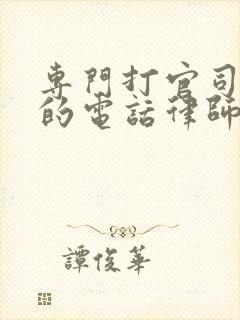 專門打官司
的電話律師
譚俊華